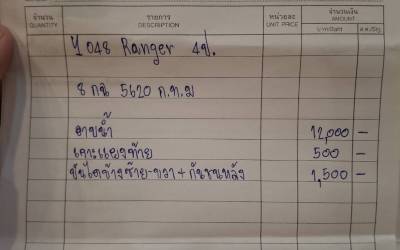 จำนวน QUANTITY รายการ DESCRIPTION หน่วยละ UNIT PRICE จำนวนเงิน AMOUNT
บาท/BAHT ส.ต./ST.
ๅ 048 Ranger 4ป.
8 กฉ 5620 ก.ท.ม
อาบน้ำ 12,000 -
เคาะแผงท้าย 500 -
บันไดข้างซ้าย-ขวา + กันชนหลัง 1,500 -